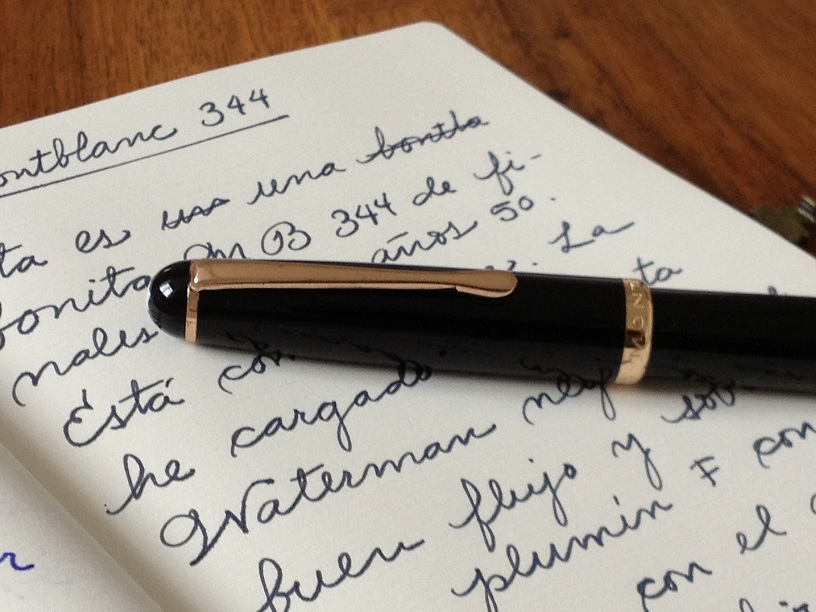 ontblanc 344
ta es una una bonita
bonita MB 344 de fi-
nales años 50.
La
Está ta
he cargado
Waterman neg
buen flujo y sob
plumín F con
con el
MONT